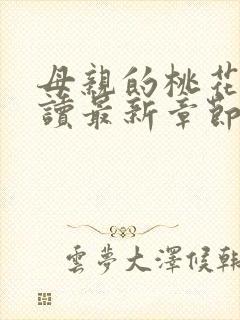 母親的桃花
讀最新章節
雲夢大澤候